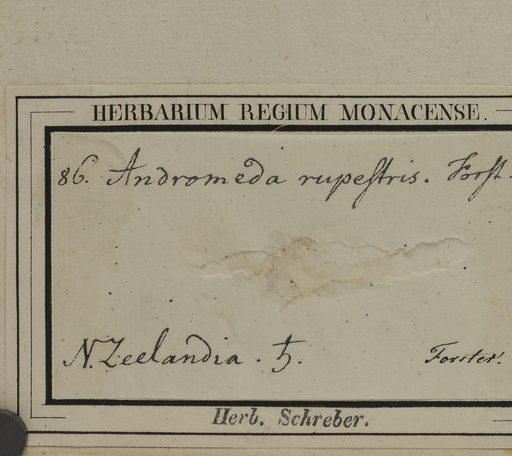 HERBARIUM REGIUM MONACENSE.
86. Andromeda rupeſtris. Forſt.
N. Zeelandia. ♄.
Forster!
Herb. Schreber.